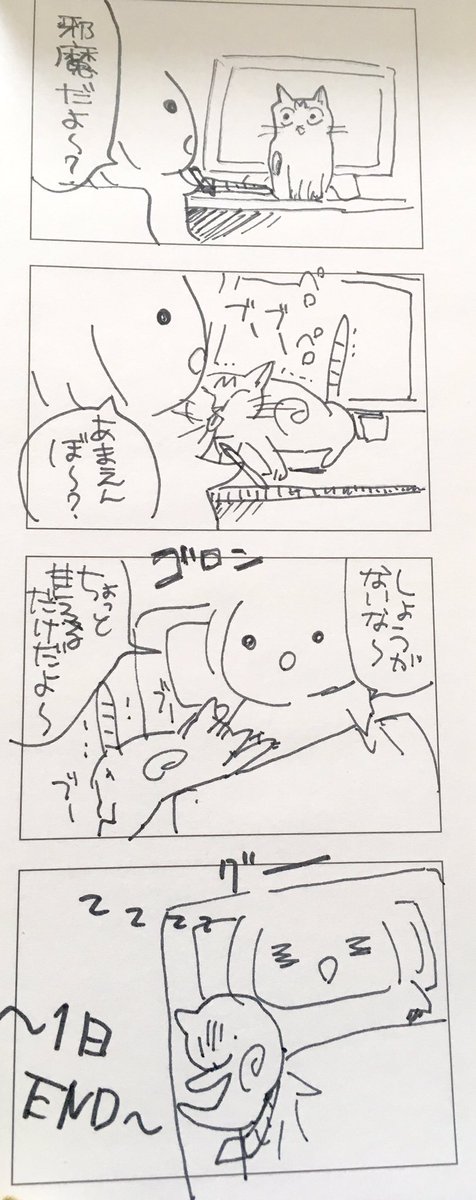 邪魔だよ〜?
ペロ
ペロ
ブー
ブー
あまえん
ぼ〜?
ゴロン
しょうが
ないな〜
ちょっと
甘える
だけだよ〜
ブー
ブー
グー
z z z z
〜1日
END〜